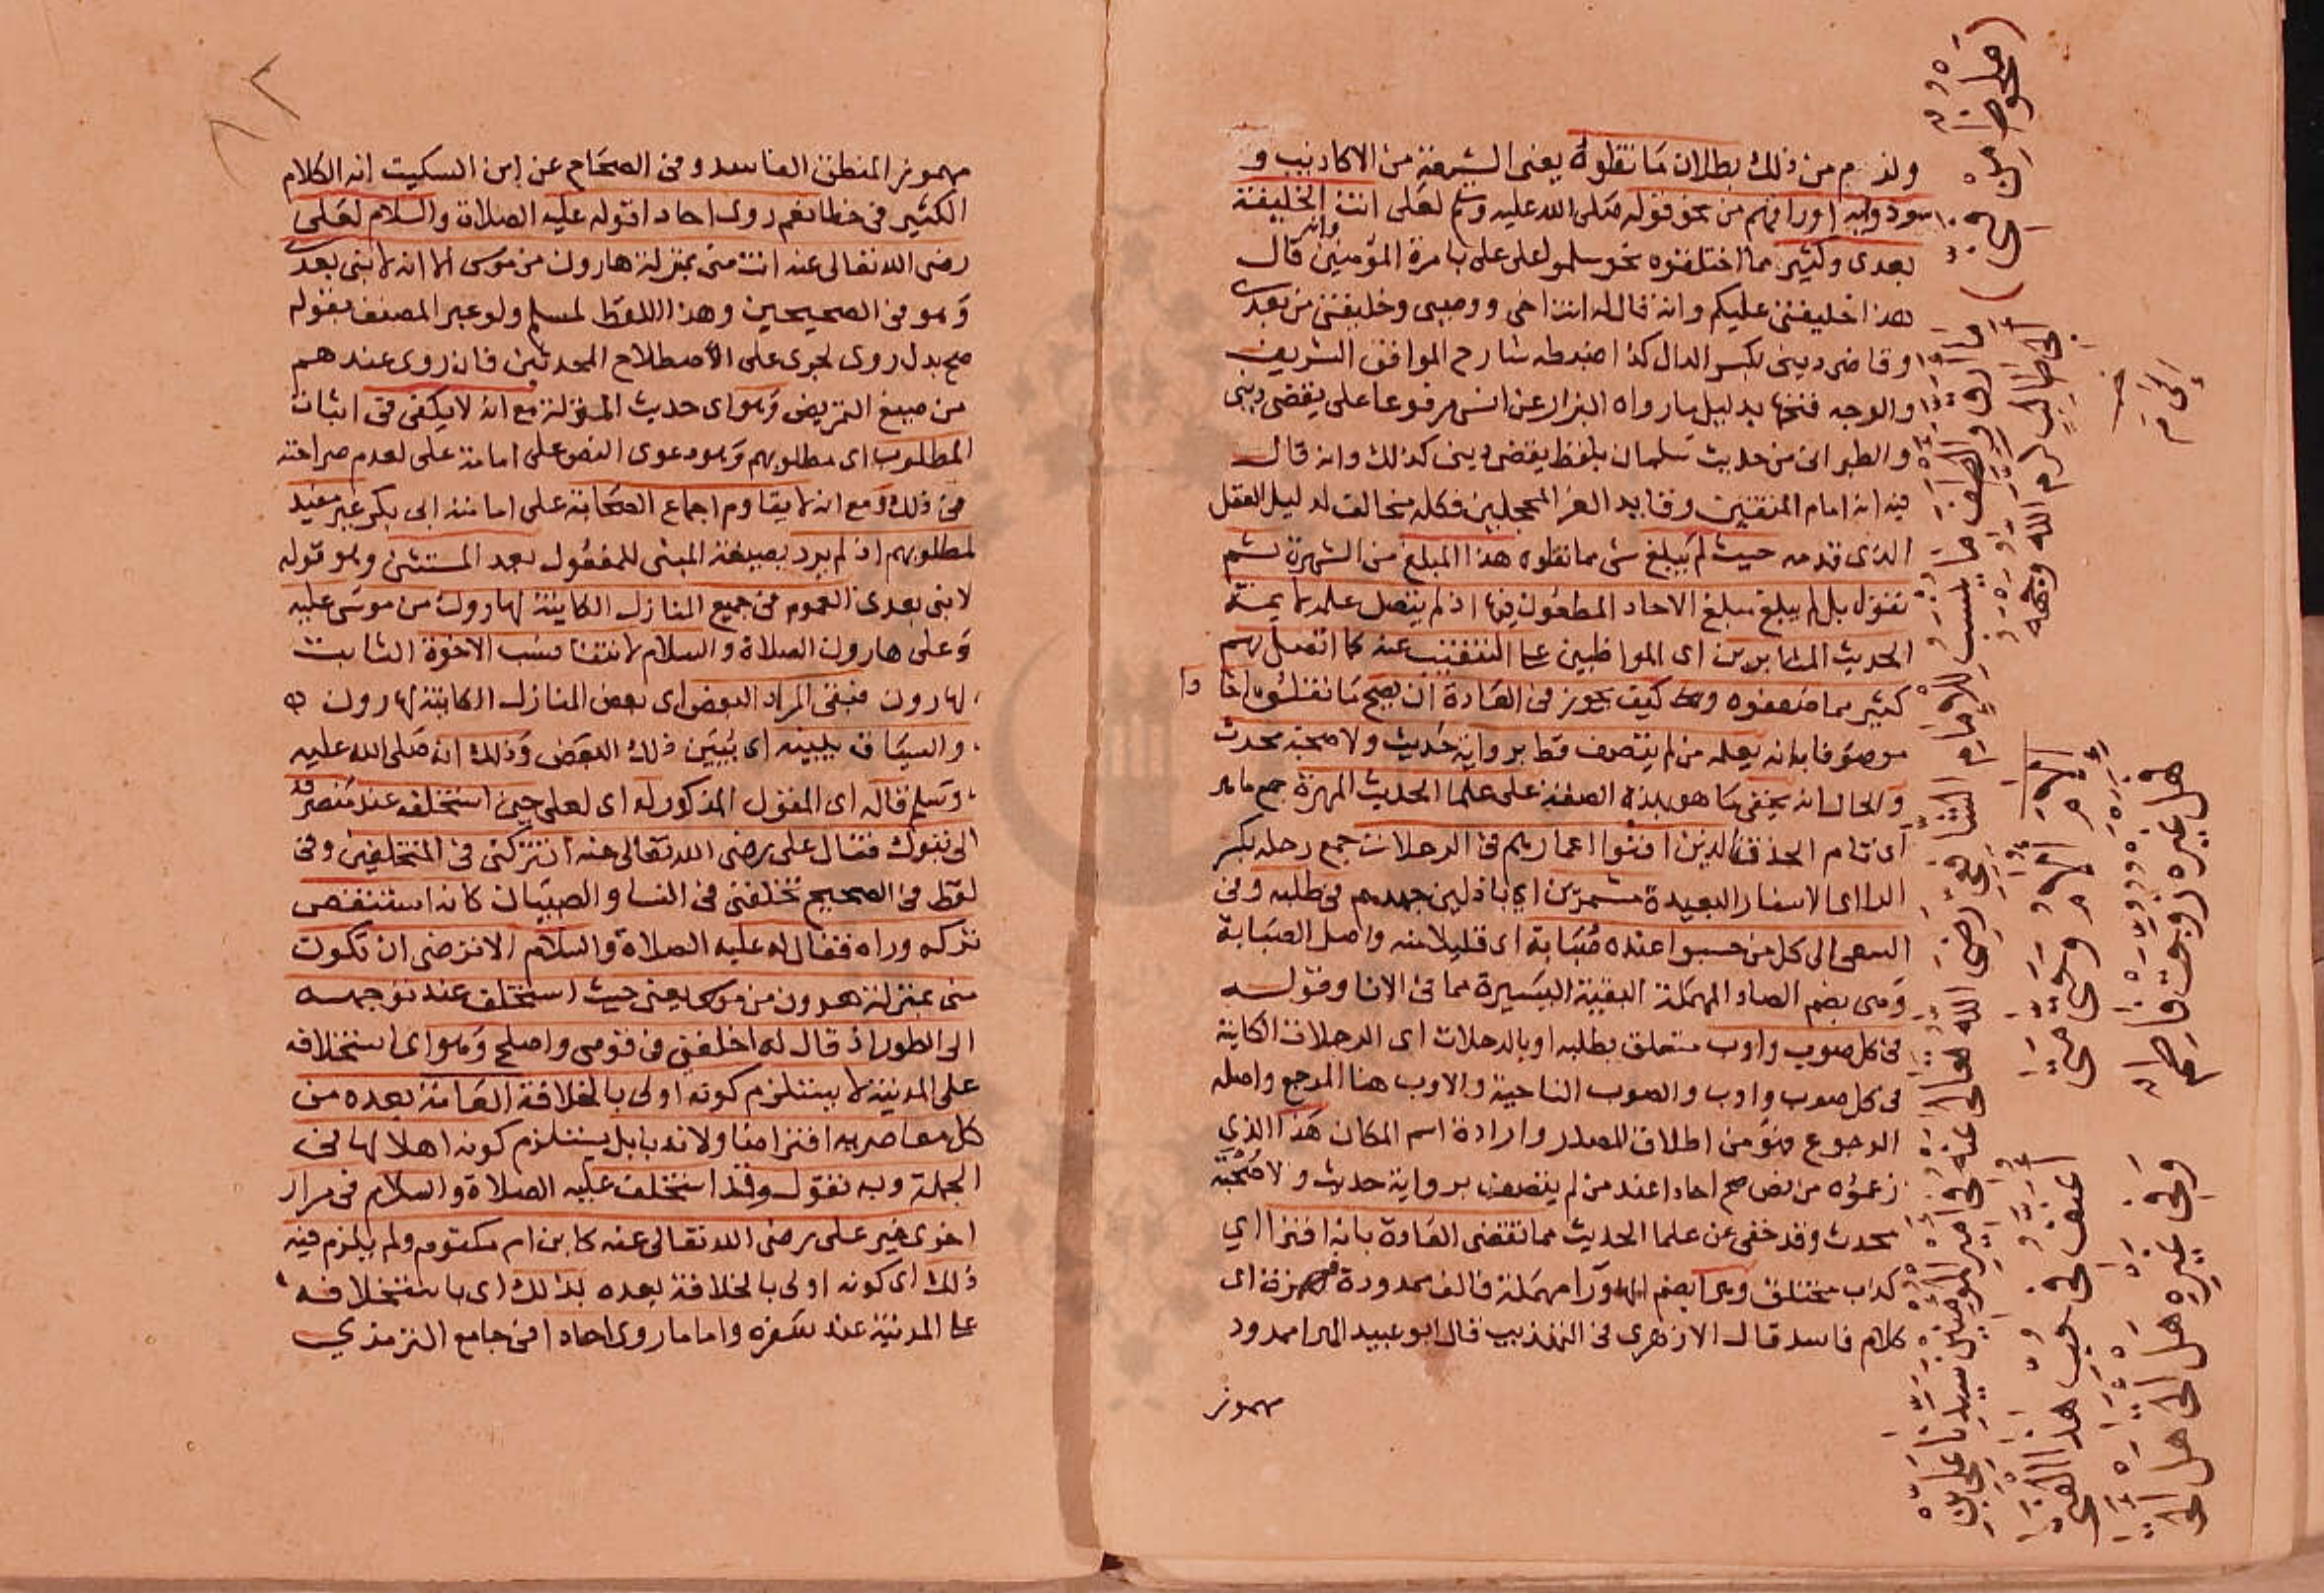 ولزم من ذلك بطلان ما نقلوه يعنى الشيعة من الاكاذيب و
سودوا به اوراقهم من نحو قوله صلى الله عليه وسلم لعلى انت الخليفة
بعدى وكثير مما اختلقوه نحو سلموا على على بامرة المؤمنين وانه قال
هذا خليفتى عليكم وانه قال له انت اخى ووصيى وخليفتى من بعدى
وقاضى دينى بكسر الدال كذا ضبطه شارح المواقف الشريف
والوجه فتحها بدليل ما رواه البزار عن انس مرفوعا على يقضى دينى
والطبرانى من حديث سلمان بلفظ يقضى دينى كذلك وانه قال
فيه انه امام المتقين وقايد الغر المحجلين فكله مخالف لدليل العقل
الذى قدمه حيث لم يبلغ شى مما نقلوه هذا المبلغ من الشهرة ثم
نقول بل لم يبلغ مبلغ الاحاد المطعون فيها اذ لم يتصل علمه بايمة
الحديث المثابرين اى المواظبين على التنقيب عنه كما اتصل بهم
كثير مما ضعفوه وكيف يجوز فى العادة ان يصح ما نقلوه احادا
موصوفا بانه يعلمه من لم يتصف قط برواية حديث ولا صحبة محدث
والحال انه يخفى ما هو بهذه الصفة على علما الحديث المهرة جمع ماهر
اى تام الحذق الذين افنوا اعمارهم فى الرحلات جمع رحلة بكسر
الرا اى الاسفار البعيدة مشمرين اي باذلين جهدهم فى طلبه وفى
السعى الى كل من حسبوا عنده صبابة اى قليلا منه واصل الصبابة
وهى بضم الصاد المهملة البقية اليسيرة مما فى الانا وقوله
فى كل صوب واوب متعلق بطلبه او بالرحلات اى الرحلات الكاينة
فى كل صوب واوب والصوب الناحية والاوب هنا المرجع واصله
الرجوع فهو من اطلاق المصدر وارادة اسم المكان هذا الذي
زعموه من نص صح احادا عند من لم يتصف برواية حديث ولا صحبة
محدث وقد خفى عن علما الحديث مما تقضى العادة بانه افترا اي
كذب مختلق وهرا بضم الها ورا مهملة فالف ممدودة فهمزة اى
كلام فاسد قال الازهرى فى التهذيب قال ابو عبيد الهرا ممدود
مهموز
مهموز المنطق الفاسد وفى الصحاح عن ابن السكيت انه الكلام
الكثير فى خطا نعم روى احادا قوله عليه الصلاة والسلام لعلى
رضى الله تعالى عنه انت منى بمنزلة هارون من موسى الا انه لا نبى بعدى
وهو فى الصحيحين وهذا اللفظ لمسلم ولو عبر المصنف بقوله
صح بدل روى لجرى على الاصطلاح المحدثين فان روى عندهم
من صيغ التمريض وهو اى حديث المنزلة مع انه لا يكفى فى اثبات
المطلوب اى مطلوبهم وهو دعوى النص على امامة على لعدم صراحته
فى ذلك ومع انه لا يقاوم اجماع الصحابة على امامة ابى بكر غير مفيد
لمطلوبهم اذ لم يرد بصيغة المبنى للمفعول بعد المستثنى وهو قوله
لا نبى بعدى العموم فى جميع المنازل الكاينة لهارون من موسى عليه
وعلى هارون الصلاة والسلام لانتفا نسب الاخوة الثابت
لهارون فبقى المراد البعض اى بعض المنازل الكاينة لهارون
والسياق يبينه اى يبين ذلك البعض وذلك انه صلى الله عليه
وسلم قاله اى القول المذكور له اى لعلى حين استخلفه عند منصرفه
الى تبوك فقال على رضى الله تعالى عنه اتتركنى فى المتخلفين وفى
لفظ فى الصحيح تخلفنى فى النسا والصبيان كانه استنقص
تركه وراه فقال له عليه الصلاة والسلام الا ترضى ان تكون
منى بمنزلة هرون من موسى يعنى حيث استخلفه عند توجهه
الى الطور اذ قال له اخلفنى فى قومى واصلح وهو اى استخلافه
على المدينة لا يستلزم كونه اولى بالخلافة العامة بعده من
كل معاصريه افتراضا ولا ندبا بل يستلزم كونه اهلا لها فى
الجملة وبه نقول وقد استخلف عليه الصلاة والسلام فى مرار
اخرى غير على رضى الله تعالى عنه كابن ام مكتوم ولم يلزم فيه
ذلك اى كونه اولى بالخلافة بعده بذلك اى باستخلافه
على المدينة عند سفره واما ما روى احادا فى جامع الترمذي
٨٢
(ملحوظ من الحق)
ما ارق والطف ما ينسب للامام الشافعى رضى الله تعالى عنه فى امير المؤمنين سيدنا على بن
ابى طالب كرم الله وجهه
الام الام وحتى متى
اعنف فى حب هذا الفتى
هل غيره زوجت فاطم
وفى غيره هل اتى هل اتى